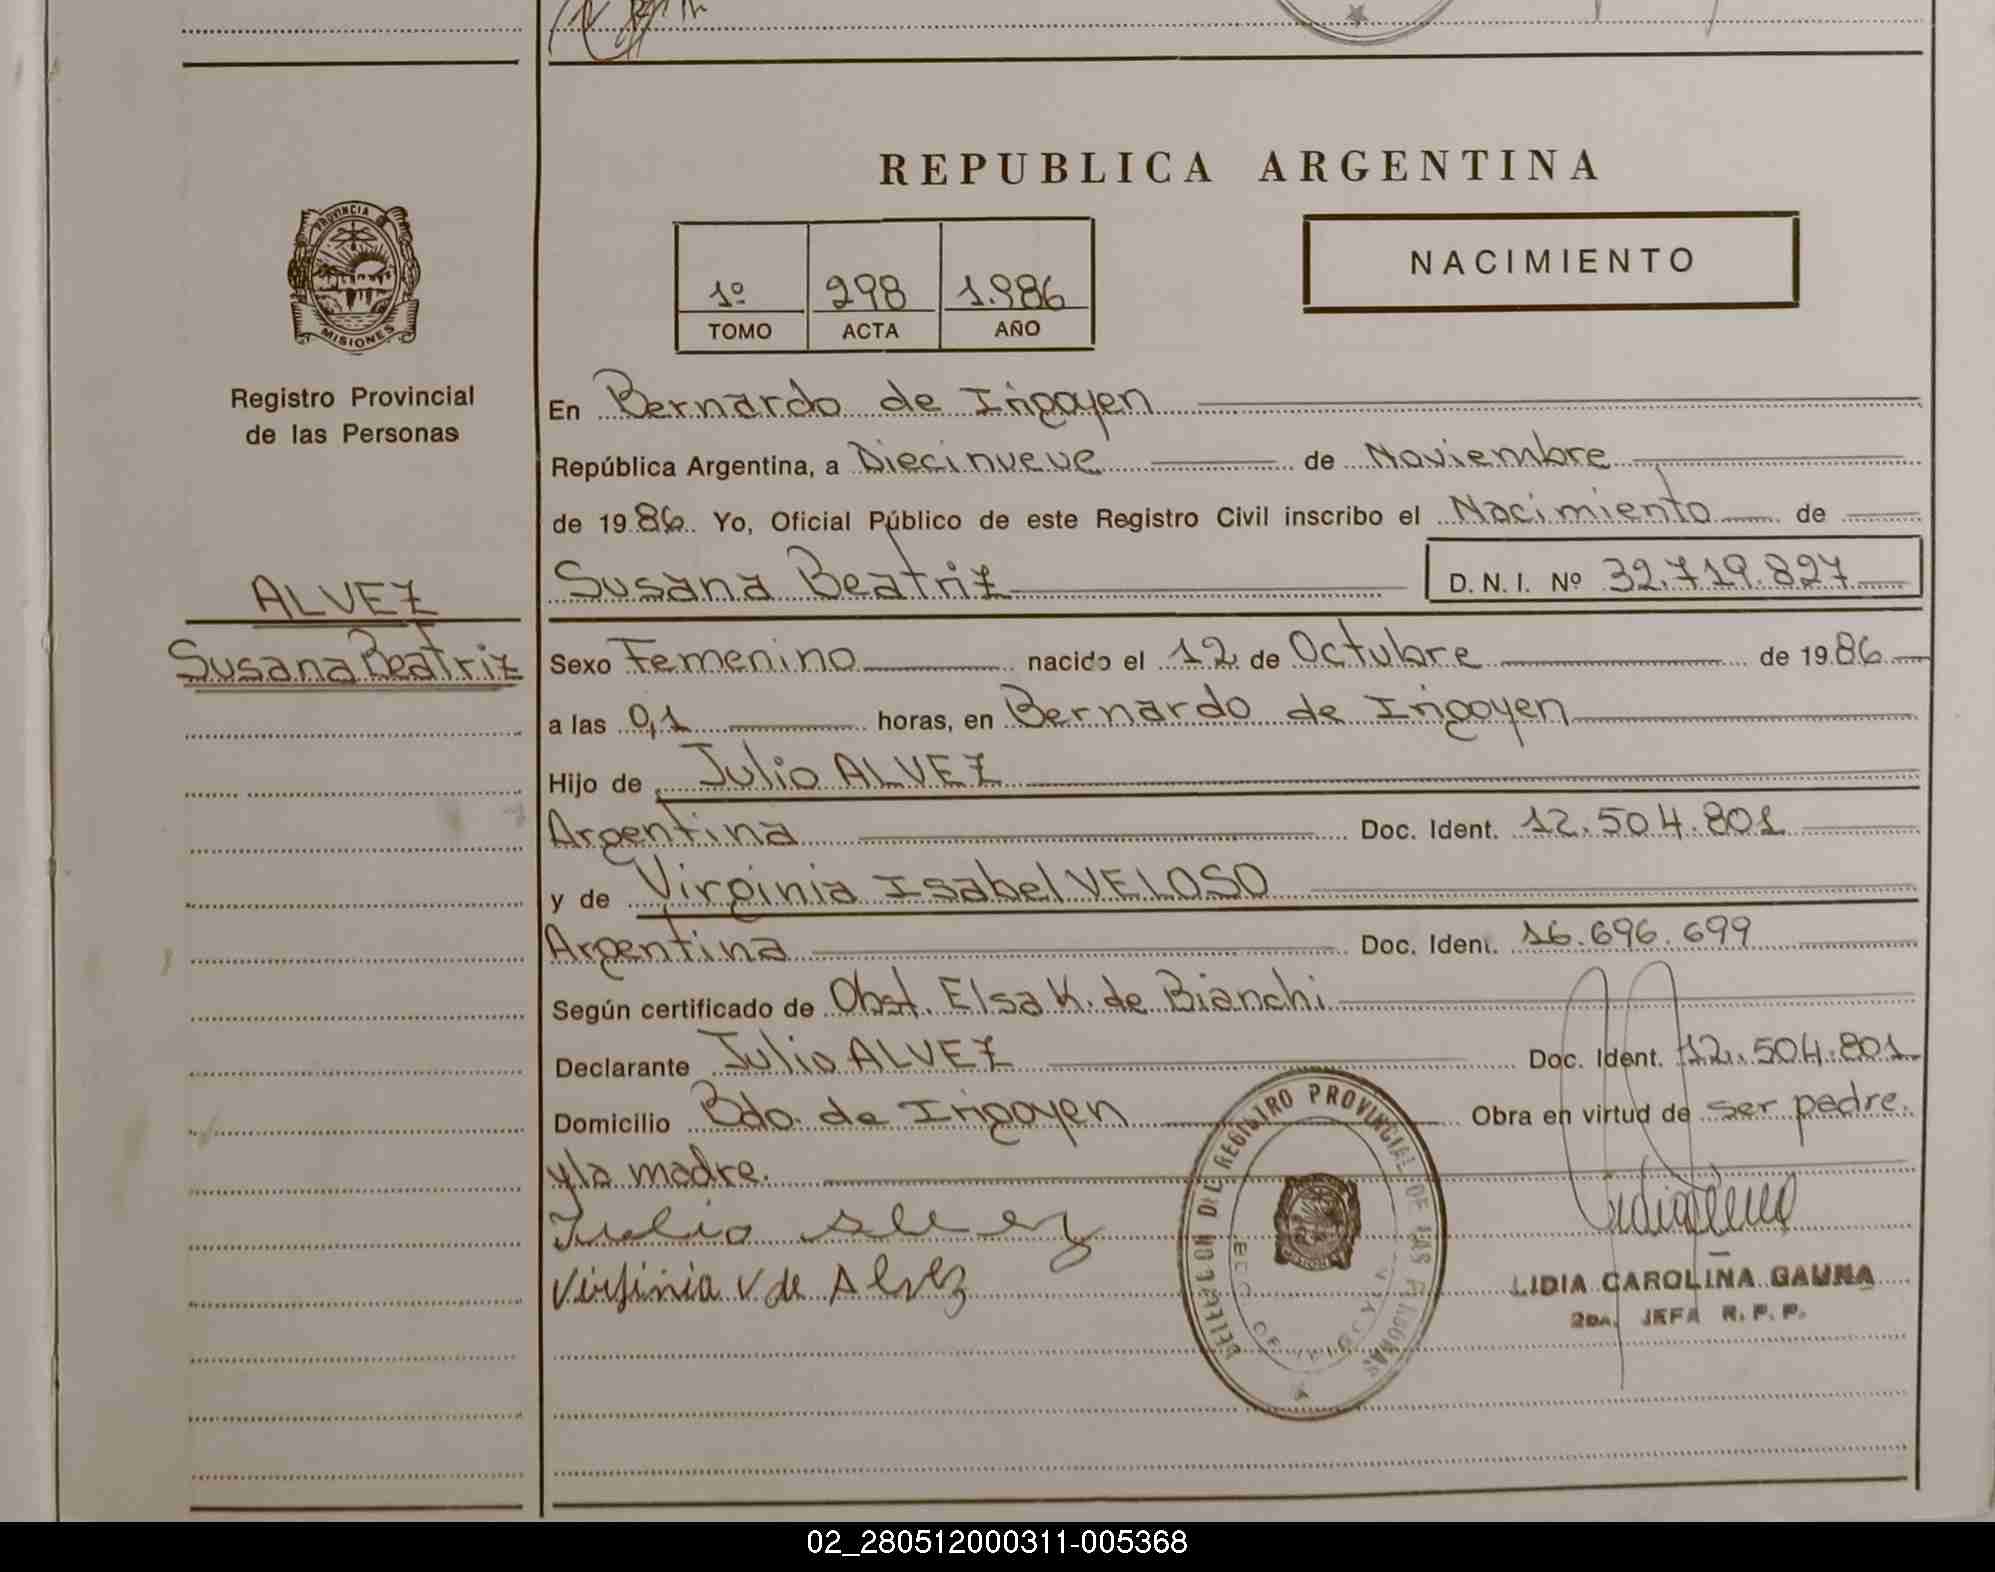 REPUBLICA ARGENTINA
PROVINCIA
MISIONES
Registro Provincial
de las Personas
1º 298 1.986
TOMO ACTA AÑO
NACIMIENTO
En Bernardo de Irigoyen
República Argentina, a Diecinueve de Noviembre
de 1986. Yo, Oficial Público de este Registro Civil inscribo el Nacimiento de
ALVEZ
Susana Beatriz
Susana Beatriz D.N.I. Nº 32.719.827
Sexo Femenino nacido el 12 de Octubre de 1986
a las 0,1 horas, en Bernardo de Irigoyen
Hijo de Julio ALVEZ
Argentina Doc. Ident. 12.504.801
y de Virginia Isabel VELOSO
Argentina Doc. Ident. 16.696.699
Según certificado de Obst. Elsa K. de Bianchi
Declarante Julio ALVEZ Doc. Ident. 12.504.801
Domicilio Bdo. de Irigoyen Obra en virtud de ser padre.
y la madre.
Julio Alvez
Virginia V de Alvez
DELEGACION DEL REGISTRO PROVINCIAL DE LAS PERSONAS
BDO. DE IRIGOYEN
LIDIA CAROLINA GAUNA
2DA. JEFA R. P. P.
02_280512000311-005368